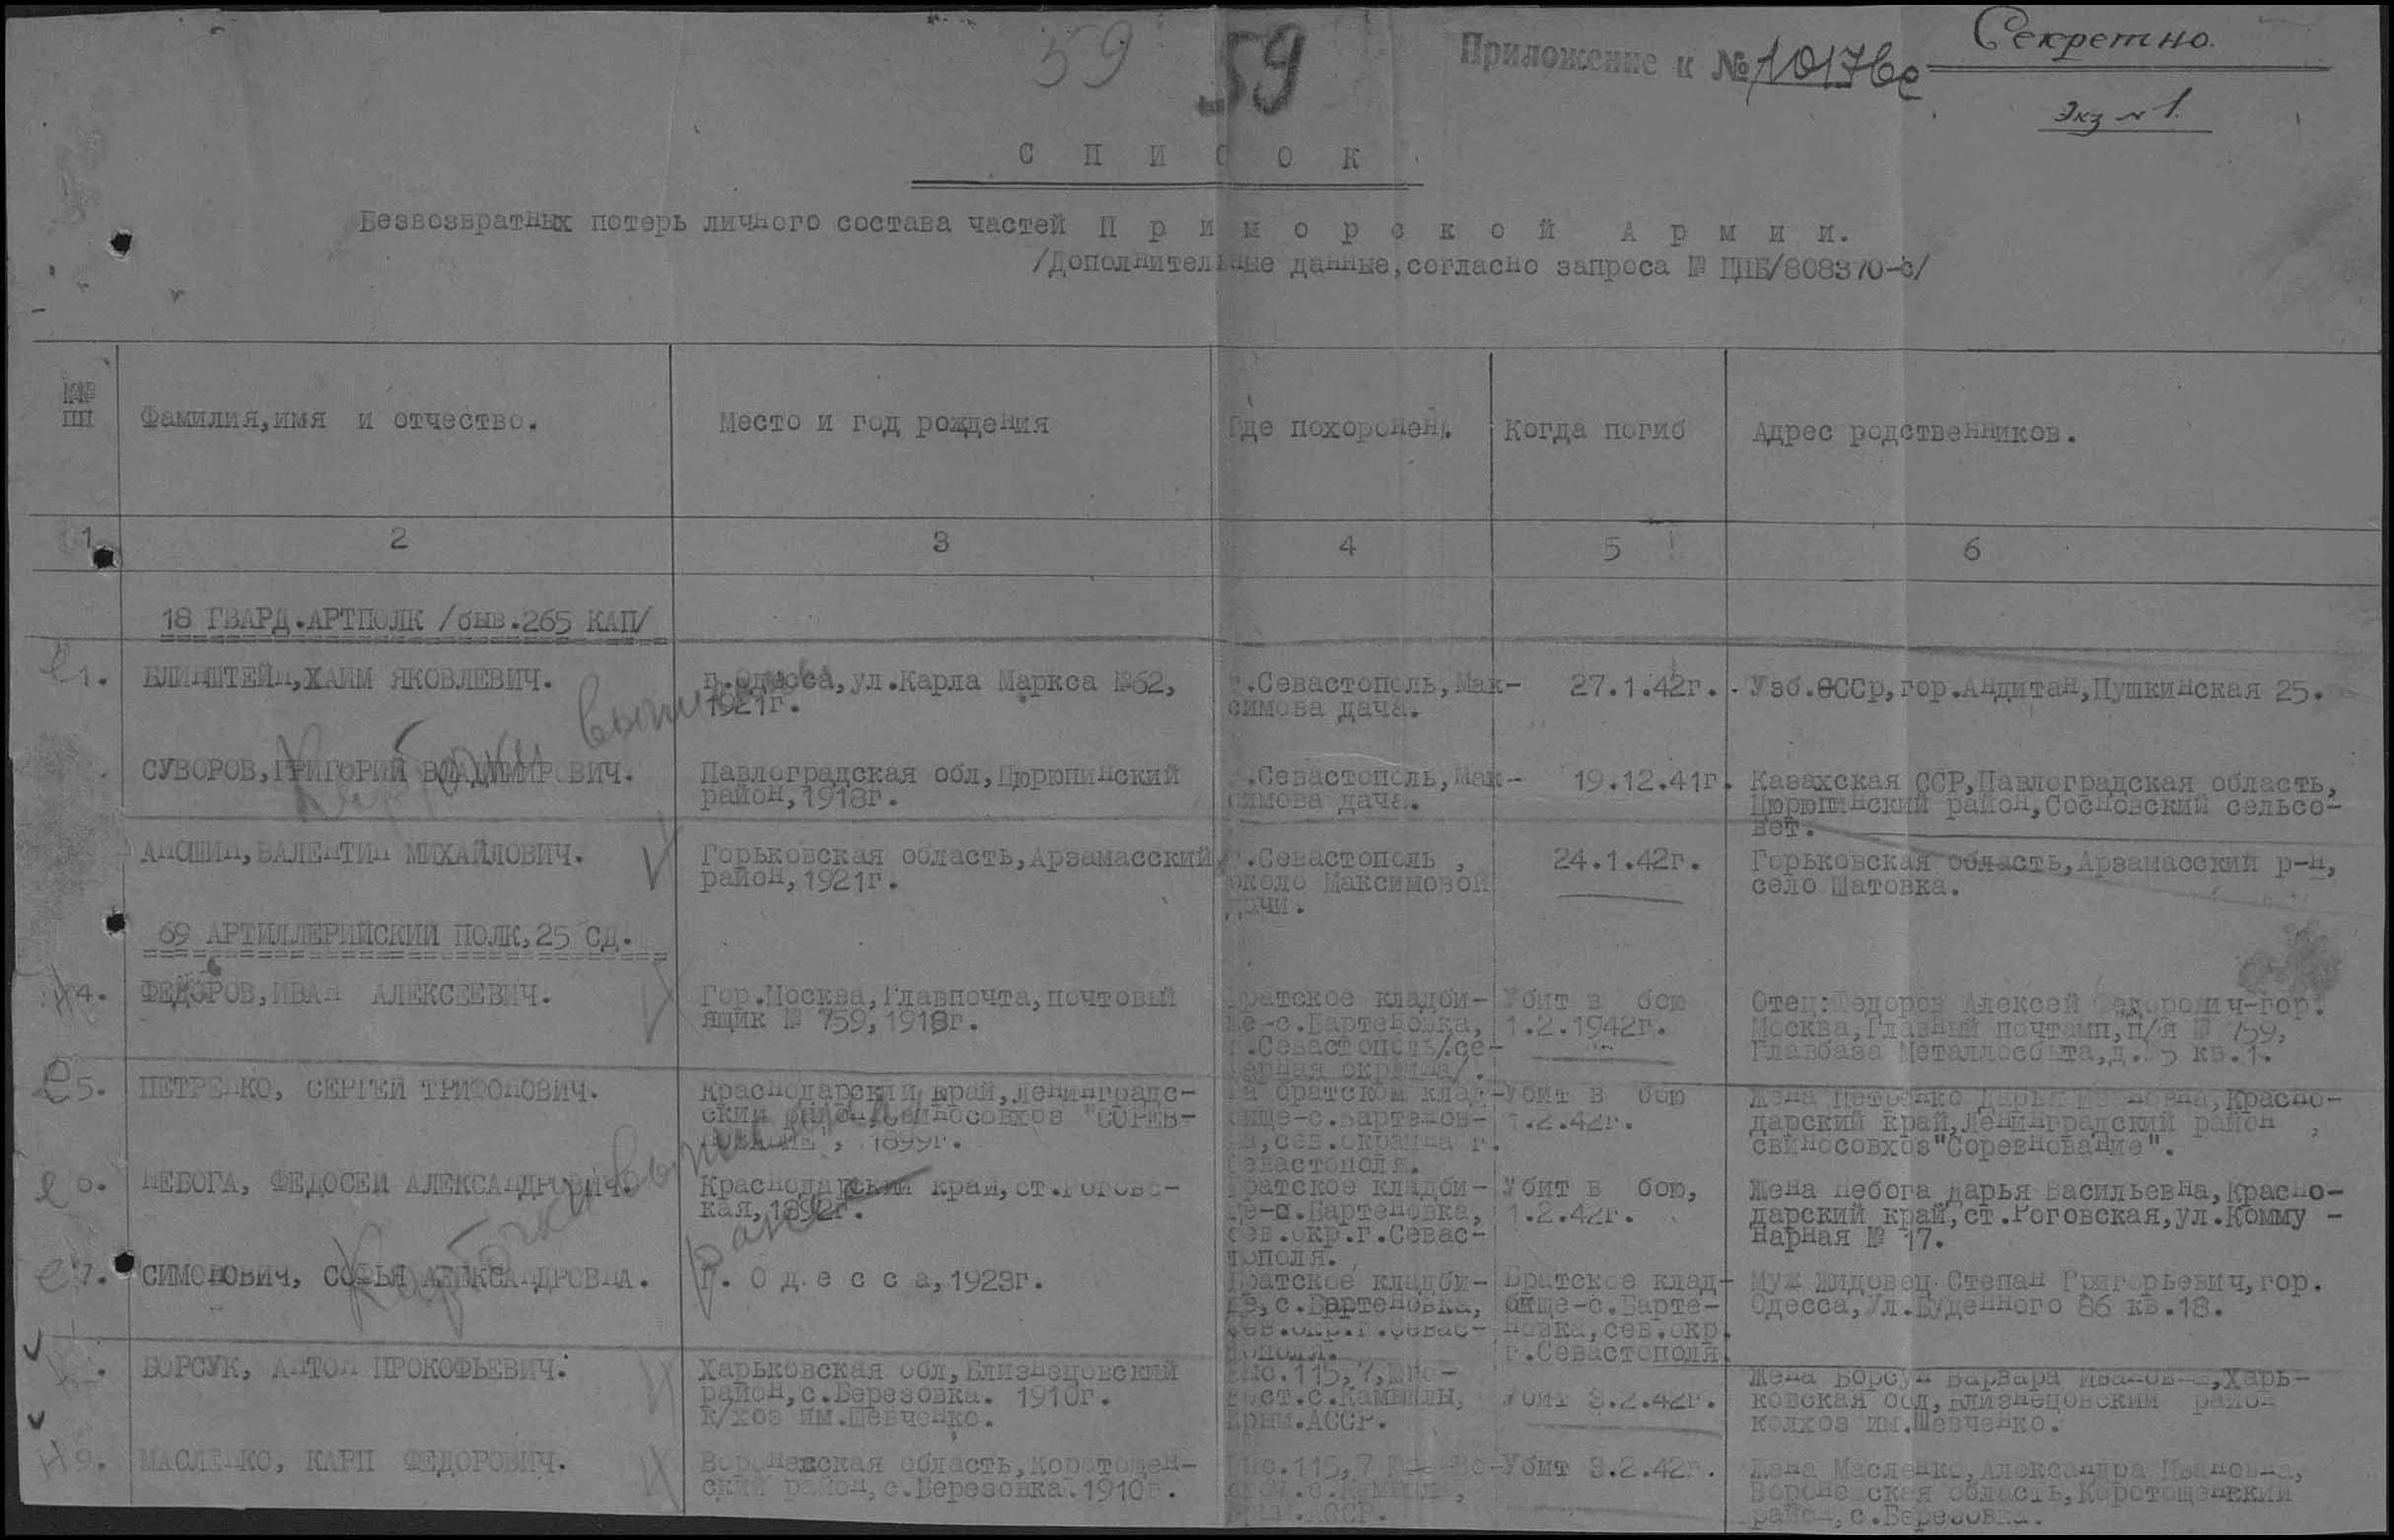 59 59 Приложение к № 1017вс Секретно.
Экз № 1.
С П И С О К
Безвозвратных потерь личного состава частей П р и м о р с к о й А р м и и.
/Дополнительные данные,согласно запроса № ЦПБ/808370-с/
№№
пп
Фамилия,имя и отчество.
Место и год рождения
Где похоронен.
Когда погиб
Адрес родственников.
1 2 3 4 5 6
18 ГВАРД.АРТПОЛК /быв.265 КАП/
1. БЛИНШТЕЙН,ХАИМ ЯКОВЛЕВИЧ.
г.Одесса,ул.Карла Маркса №62,
1921г.
г.Севастополь,Мак-
симова дача.
27.1.42г.
Узб.ССср,гор.Андитан,Пушкинская 25.
СУВОРОВ,ГРИГОРИЙ ВЛАДИМИРОВИЧ.
Павлоградская обл,Цюрюпинский
район,1918г.
г.Севастополь,Мак-
симова дача.
19.12.41г.
Казахская ССР,Павлоградская область,
Цюрюпинский район,Сосновский сельсо-
вет.
Карточки выписаны
АНОШИН,ВАЛЕНТИН МИХАЙЛОВИЧ.
Горьковская область,Арзамасский
район,1921г.
г.Севастополь ,
около Максимовой
дачи.
24.1.42г.
Горьковская область,Арзамасский р-н,
село Шатовка.
69 АРТИЛЛЕРИЙСКИЙ ПОЛК,25 СД.
4. ФЕДОРОВ,ИВАН АЛЕКСЕЕВИЧ.
Гор.Москва,Главпочта,почтовый
ящик № 759,1918г.
Братское кладби-
ще-с.Бартеновка,
г.Севастополь/се-
верная окраина/.
Убит в бою
1.2.1942г.
Отец:Федоров Алексей Федорович-гор.
Москва,Главный почтамп,п/я № 759,
Главбаза Металлосбыта,д. 5 кв.1.
5. ПЕТРЕНКО, СЕРГЕЙ ТРИФОНОВИЧ.
Краснодарский край,Ленинградс-
ский район,свиносовхоз "СОРЕВ-
НОВАНИЕ", 1899г.
На братском клад-
бище-с.Бартенов-
ка,сев.окраина г.
Севастополя.
Убит в бою
1.2.42г.
Жена Петренко Дарья Ивановна,Красно-
дарский край,Ленинградский район ,
свиносовхоз"Соревнование".
6. НЕБОГА, ФЕДОСЕЙ АЛЕКСАНДРОВИЧ.
Краснодарский край,ст.Роговс-
кая,1892г.
Братское кладби-
ще-с.Бартеновка,
сев.окр.г.Севас-
тополя.
Убит в бою,
1.2.42г.
Жена Небога Дарья Васильевна,Красно-
дарский край,ст.Роговская,ул.Комму -
нарная № 17.
7. СИМОНОВИЧ, СОФЬЯ АЛЕКСАНДРОВНА.
г. О д е с с а,1923г.
Братское кладби-
ще,с.Бартеновка,
сев.окр.г.Севас-
тополя.
Братское клад-
бище-с.Барте-
новка,сев.окр.
г.Севастополя.
Муж Жидовец Степан Григорьевич,гор.
Одесса,Ул.Буденного 86 кв.18.
Карточки выписаны ранее
БОРСУК, АНТОН ПРОКОФЬЕВИЧ.
Харьковская обл,Близнецовский
район,с.Березовка. 1910г.
к/хоз им.Шевченко.
выс.115,7,Юго-
вост.с.Камышлы,
Крым.АССР.
Убит 3.2.42г.
Жена Борсук Варвара Ивановна,Харь-
ковская обл,Близнецовский район
колхоз им.Шевченко.
9. МАСЛЕНКО, КАРП ФЕДОРОВИЧ.
Воронежская область,Коротошен-
ский район,с.Березовка.1910г.
выс.115,7
с.Камышлы,
Крым.АССР.
Убит 3.2.42г.
Жена Масленко,Александра Ивановна,
Воронежская область,Коротошенский
район,с.Березовка.